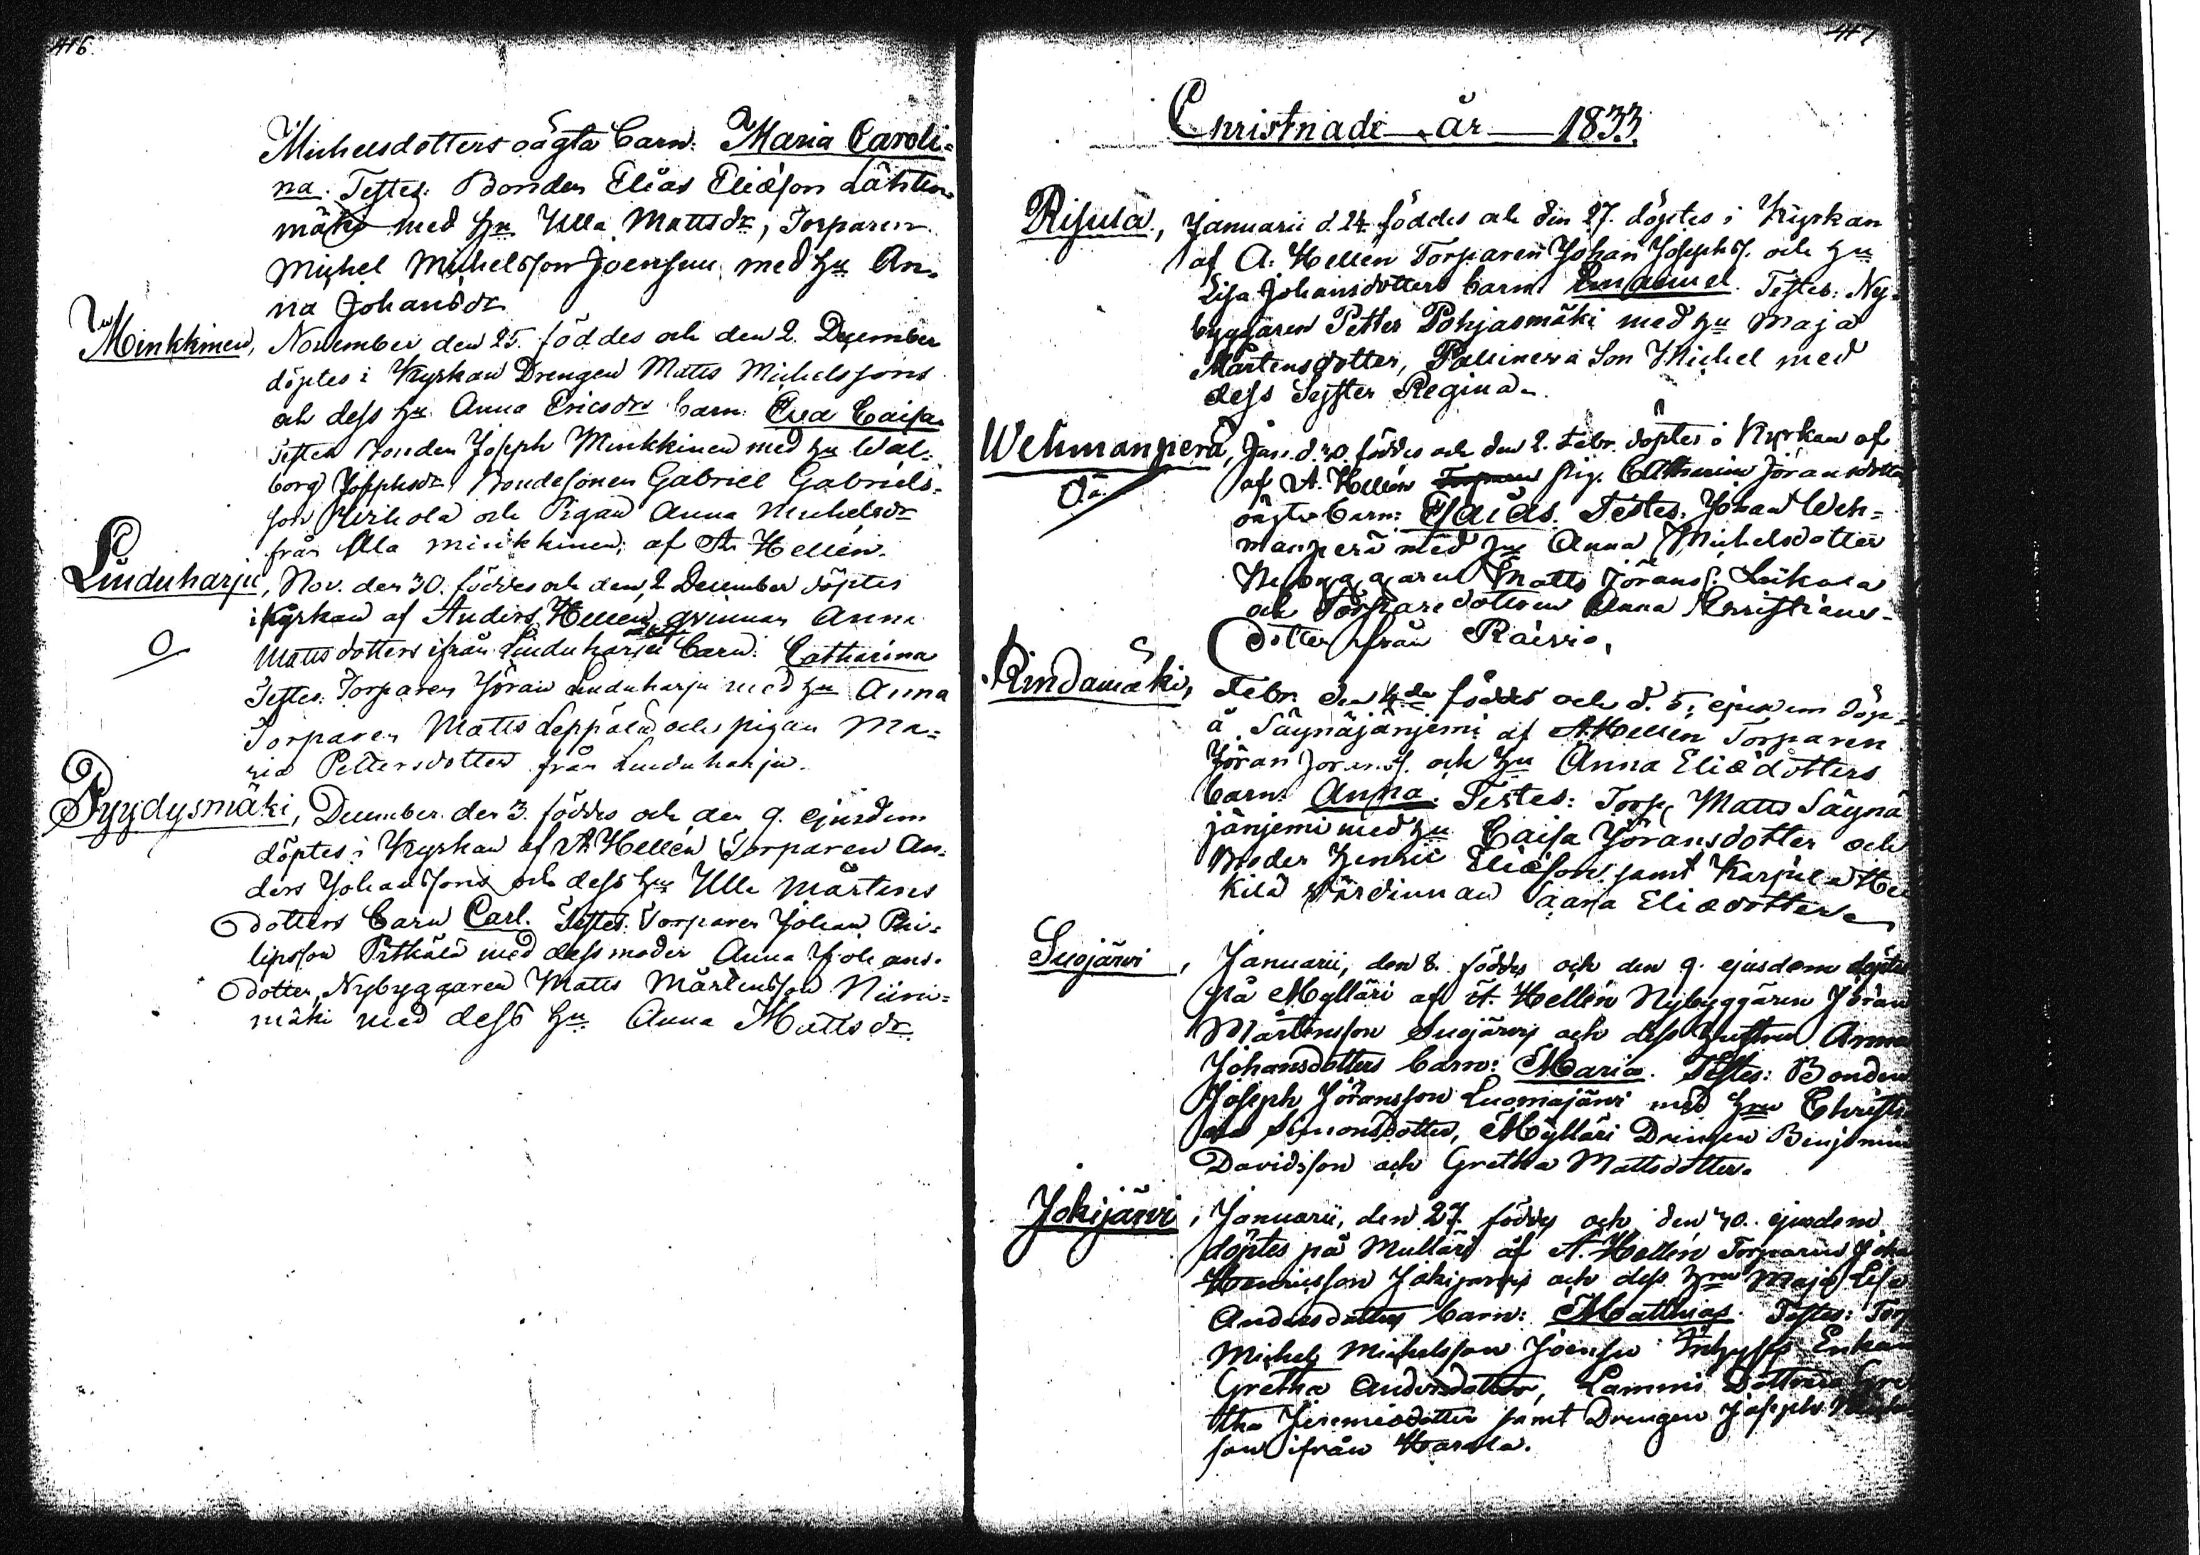 416.
Michelsdotters oägta Barn: Maria Caroli=
na. Testes: Bonden Elias Eliæson Lähten
mäki med hu Ulla Mattsdr, Torparen
Michel Michelsson Joensuu med hu An=
na Johansdr
Minkkinen, November den 25. föddes och den 2. December
döptes i Kyrkan Drengen Matts Michelssons
och dess hu Anna Ericsdrs barn Eva Caisa.
Testes Bonden Joseph Minkkinen med hu Wal=
borg Josephsdr, Bondesonen Gabriel Gabriels=
son och Pigan Anna Michelsdr
från Ala minkkinen, af A. Hellén.
Linduharju, Nov. den 30. föddes och den 2 December döptes
i kyrkan af Anders Hellen qvinnan Anna
Mattsdotters ifrån Linduharju Barn: Catharina
Testes: Torparen Jöran Linduharju med hu Anna
Torparen Matts Leppälä och pigan Ma=
ria Pettersdotter från Linduharju.
Pyydysmäki, December den 3. föddes och den 9. ejusdem
döptes i Kyrkan af A. Hellén Torparen An=
ders Johanssons och dess hu Ulla Mårtens
dotters Barn Carl. Testes: Torparen Johan Phi=
lipsson Pitkälä med dess moder Anna Johans=
dotter, Nybyggaren Matts Mårtensson Niini=
mäki med dess hu Anna Mattsdr.
417
Christnade år 1833.
Risula, Januarii d. 24. föddes och den 27. döptes i Kyrkan
af A. Hellén Torparen Johan Josephs. och hu
Lisa Johansdotters barn Emanuel. Testes: Ny=
byggaren Petter Pohjasmäki med hu Maja
Mårtensdotter, Son Michel med
dess Syster Regina.
Wehmanperä, Jan. d. 30. föddes och den 2. Febr. döptes i Kyrkan af
Oä. af A. Hellén Torparen pig. Catharina Jöransdotters
oägta barn: Esaias. Testes: Johan Weh=
manperä med hu Anna Michelsdotter
Nybyggaren Matts Jörans. Luikala
och Torparedottren Anna Christians=
dotter från Räisiö.
Rindamäki, Febr. den 4de föddes och d. 5. ejusdem döp=
å Säynäjänjemi af A. Hellén Torparen
Jöran Jörans. och hu Anna Eliædotters
barn: Anna. Testes: Torp. Matts Säynä
jänjemi med hu Caisa Jöransdotter och
Broder Henric Eliæson samt Karjula
kilä Värdinnan Saara Eliædotter
Suojärvi, Januarii, den 8. föddes och den 9. ejusdem döptes
på Mylläri af A. Hellén Nybyggaren Jöran
Mårtensson Suojärvi och dess hustru Anna
Johansdotters barn: Maria. Testes: Bonden
Joseph Jöransson Luomajärvi med hru Christi
na Simonsdotter, Mylläri Drengen Benjamin
Davidsson och Gretha Mattsdotter.
Jokijärvi, Januarii, den 27. föddes och den 30. ejusdem
döptes på Mulläri af A. Hellén Torparen Joha
Henricsson Jokijärvi och dess hru Maja Lisa
Andersdotters barn: Matthias. Testes: Torp
Michel Michelsson Joensuu Enkan
Gretha Andersdotter, Lammi Dottren Gre
tha Jeremiasdotter samt Drengen Joseph
son ifrån Harala.